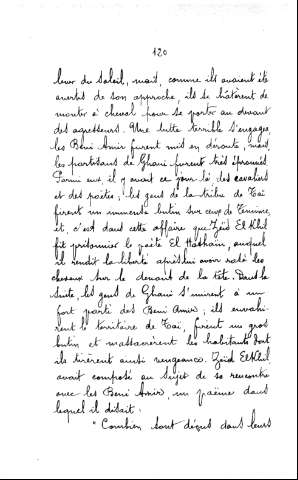 120
lever du soleil, mais, comme ils avaient été
avertis de son approche, ils se hâtèrent de
monter à cheval pour se porter au devant
des agresseurs. Une lutte terrible s'engagea,
les Beni Amir furent mis en déroute, mais
les partisans de Ghani furent très éprouvés.
Parmi eux, il y avait ce jour là, des cavaliers
et des poètes; les gens de la tribu de Taï
firent un immense butin sur ceux de
et, c'est dans cette affaire que Zeïd El Khil
fit prisonnier le poète El Hathaïm, auquel
il rendit la liberté après lui avoir rasé les
cheveux sur le devant de la tête. Dans la
suite, les gens de Ghani s'unirent à un
fort parti des Beni Amir; ils envahi-
rent le territoire de Taï, firent un gros
butin et massacrèrent les habitants dont
ils tirèrent ainsi vengeance. Zeïd El Khil
avait composé au sujet de sa rencontre
avec les Beni Amir, un poème dans
lequel il disait:
"Combien sont déçus dans leurs